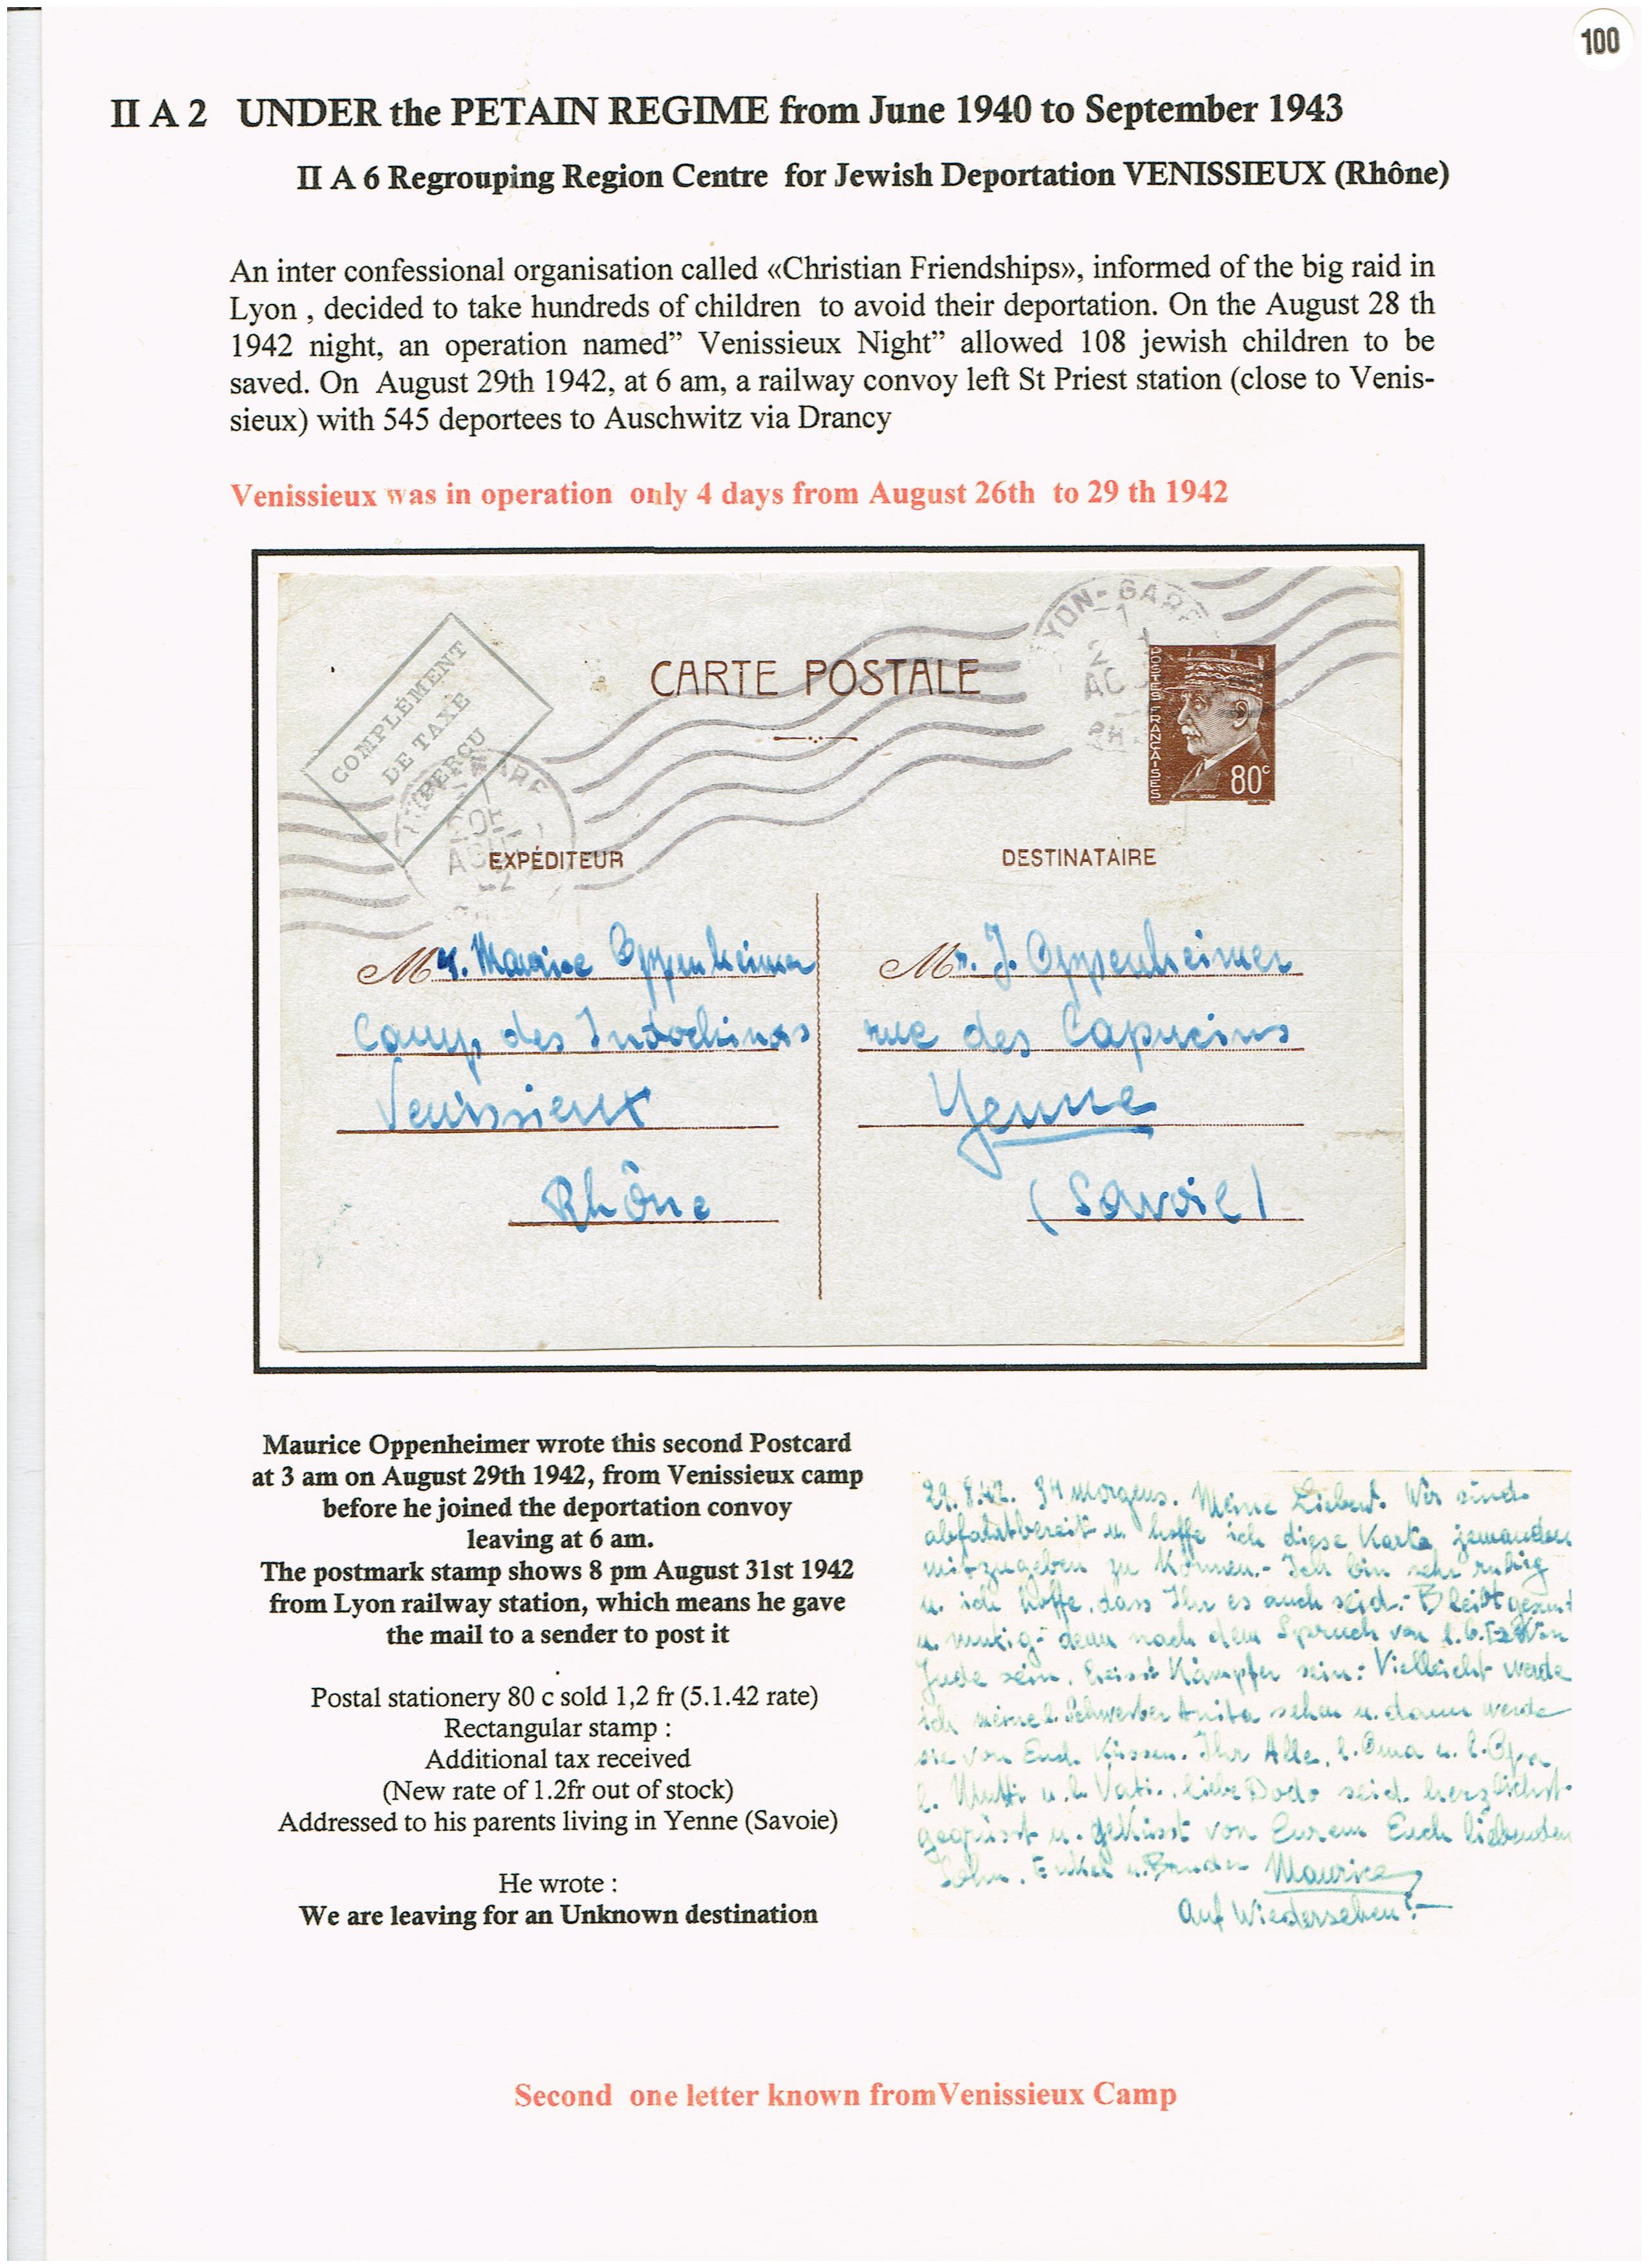 100
II A 2 UNDER the PETAIN REGIME from June 1940 to September 1943
II A 6 Regrouping Region Centre for Jewish Deportation VENISSIEUX (Rhône)
An inter confessional organisation called «Christian Friendships», informed of the big raid in
Lyon , decided to take hundreds of children to avoid their deportation. On the August 28 th
1942 night, an operation named” Venissieux Night” allowed 108 jewish children to be
saved. On August 29th 1942, at 6 am, a railway convoy left St Priest station (close to Venis-
sieux) with 545 deportees to Auschwitz via Drancy
Venissieux was in operation only 4 days from August 26th to 29 th 1942
COMPLÉMENT
DE TAXE
PERÇU
CARTE POSTALE
YON-GARE
POSTES FRANÇAISES
80c
EXPÉDITEUR
DESTINATAIRE
Mr. Maurice Oppenheimer
Camp des Indochinois
Venissieux
Rhône
Mr. J. Oppenheimer
rue des Capucins
Yenne
(Savoie)
Maurice Oppenheimer wrote this second Postcard
at 3 am on August 29th 1942, from Venissieux camp
before he joined the deportation convoy
leaving at 6 am.
The postmark stamp shows 8 pm August 31st 1942
from Lyon railway station, which means he gave
the mail to a sender to post it
.
Postal stationery 80 c sold 1,2 fr (5.1.42 rate)
Rectangular stamp :
Additional tax received
(New rate of 1.2fr out of stock)
Addressed to his parents living in Yenne (Savoie)
He wrote :
We are leaving for an Unknown destination
29.8.42. 3H morgens. Meine Lieben. Wir sind
abfahrtbereit u. hoffe ich diese Karte jemanden
mitzugeben zu können.- Ich bin sehr ruhig
u. ich hoffe, dass Ihr es auch seid.- Bleibt gesund
u. mutig- denn nach dem Spruch von l.
Jude sein, heisst Kämpfer sein: Vielleicht werde
ich meine l. Schwester Anita sehen u. dann werde
sie von Euch küssen. Ihr Alle, l. Oma u. l. Opa
l. Mutti u. l. Vati., liebe Dodo seid herzlichst
gegrüsst u. geküsst von Eurem Euch liebenden
Sohn, Enkel u. Bruder Maurice
Auf Wiedersehen!-
Second one letter known fromVenissieux Camp